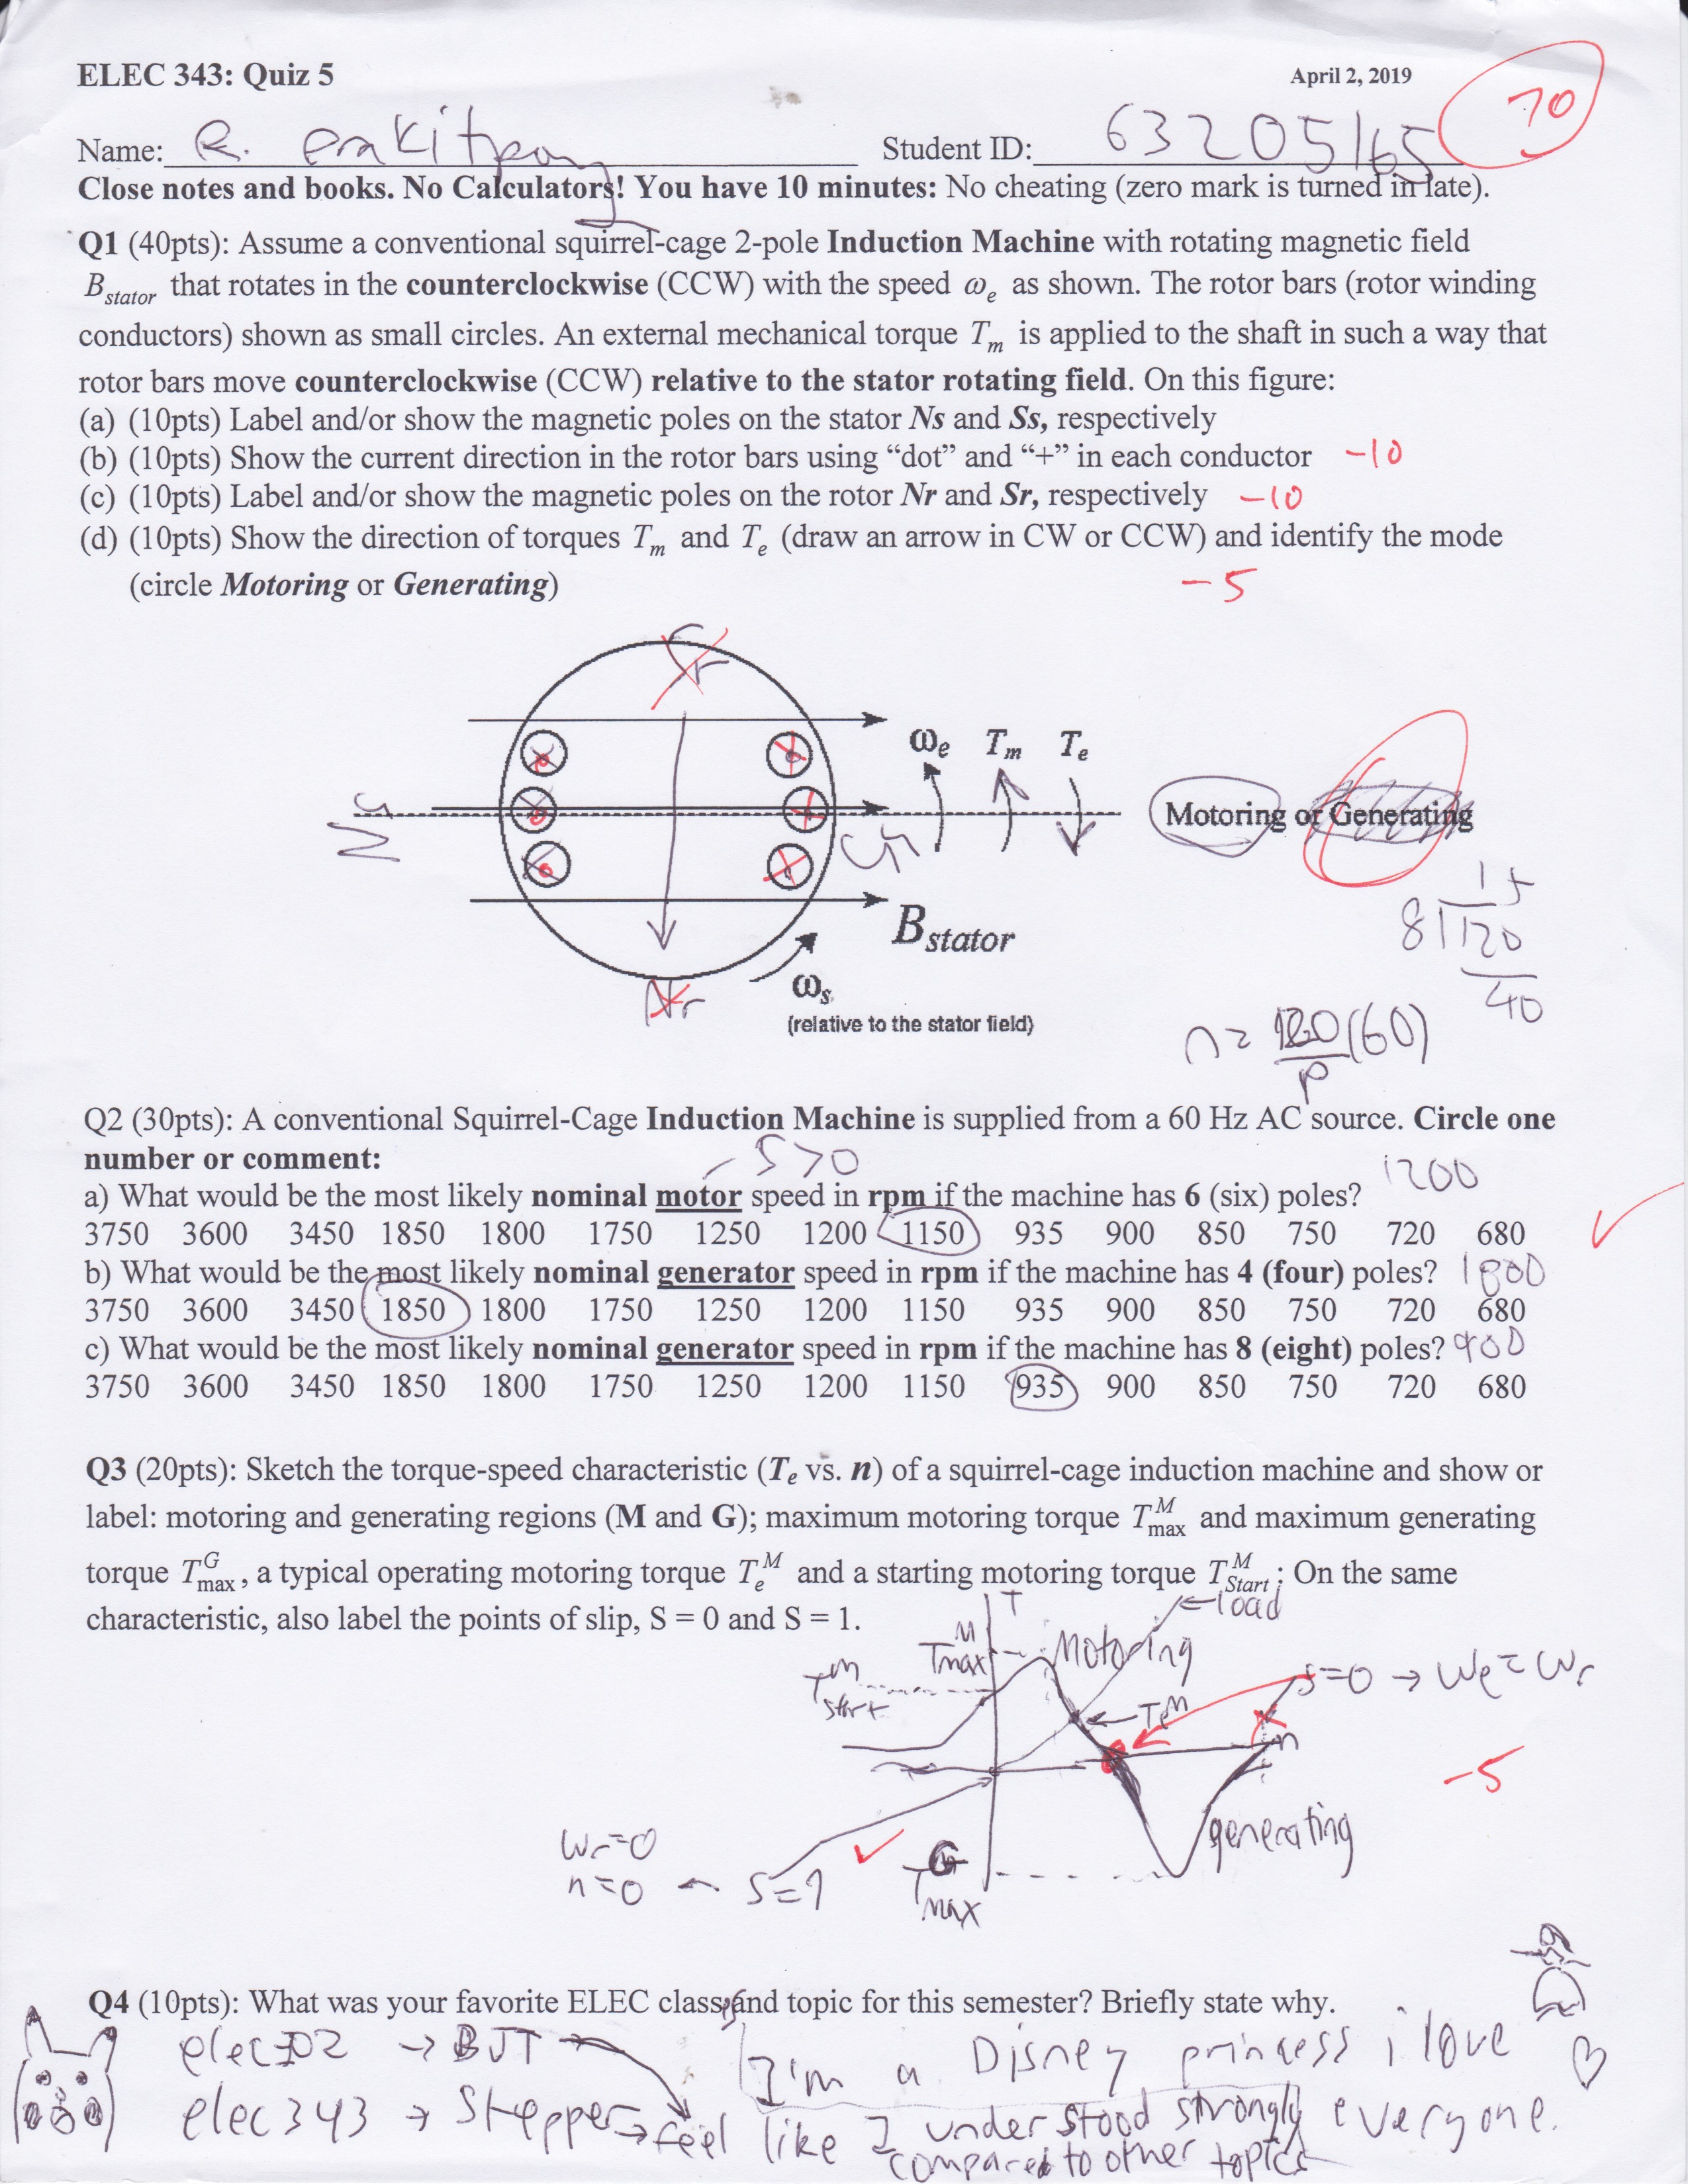 ELEC 343: Quiz 5
April 2, 2019
70
Name: R.
Student ID: 63205165
Close notes and books. No Calculators! You have 10 minutes: No cheating (zero mark is turned in late).
Q1 (40pts): Assume a conventional squirrel-cage 2-pole Induction Machine with rotating magnetic field
B_stator that rotates in the counterclockwise (CCW) with the speed ω_e as shown. The rotor bars (rotor winding
conductors) shown as small circles. An external mechanical torque T_m is applied to the shaft in such a way that
rotor bars move counterclockwise (CCW) relative to the stator rotating field. On this figure:
(a) (10pts) Label and/or show the magnetic poles on the stator Ns and Ss, respectively
(b) (10pts) Show the current direction in the rotor bars using “dot” and “+” in each conductor -10
(c) (10pts) Label and/or show the magnetic poles on the rotor Nr and Sr, respectively -10
(d) (10pts) Show the direction of torques T_m and T_e (draw an arrow in CW or CCW) and identify the mode
(circle Motoring or Generating)
-5
Sr
ω_e T_m T_e
Motoring or Generating
B_stator
Nr
ω_s
(relative to the stator field)
15
8 120
40
n = 120(60)
P
Q2 (30pts): A conventional Squirrel-Cage Induction Machine is supplied from a 60 Hz AC source. Circle one
number or comment:
S>0
a) What would be the most likely nominal motor speed in rpm if the machine has 6 (six) poles? 1200
3750 3600 3450 1850 1800 1750 1250 1200 1150 935 900 850 750 720 680
b) What would be the most likely nominal generator speed in rpm if the machine has 4 (four) poles? 1800
3750 3600 3450 1850 1800 1750 1250 1200 1150 935 900 850 750 720 680
c) What would be the most likely nominal generator speed in rpm if the machine has 8 (eight) poles? 900
3750 3600 3450 1850 1800 1750 1250 1200 1150 935 900 850 750 720 680
Q3 (20pts): Sketch the torque-speed characteristic (T_e vs. n) of a squirrel-cage induction machine and show or
label: motoring and generating regions (M and G); maximum motoring torque T_max^M and maximum generating
torque T_max^G, a typical operating motoring torque T_e^M and a starting motoring torque T_Start^M; On the same
characteristic, also label the points of slip, S = 0 and S = 1.
T
←load
T_max^M
Motoring
T_start^M
s=0 → We = Wr
← Te^M
n
-5
generating
Wr=0
n=0
S=1
T_max^G
Q4 (10pts): What was your favorite ELEC class and topic for this semester? Briefly state why.
elec302 → BJT
I'm a Disney princess i love
everyone.
elec343 → Stepper → feel like I understood strongly
compared to other topics